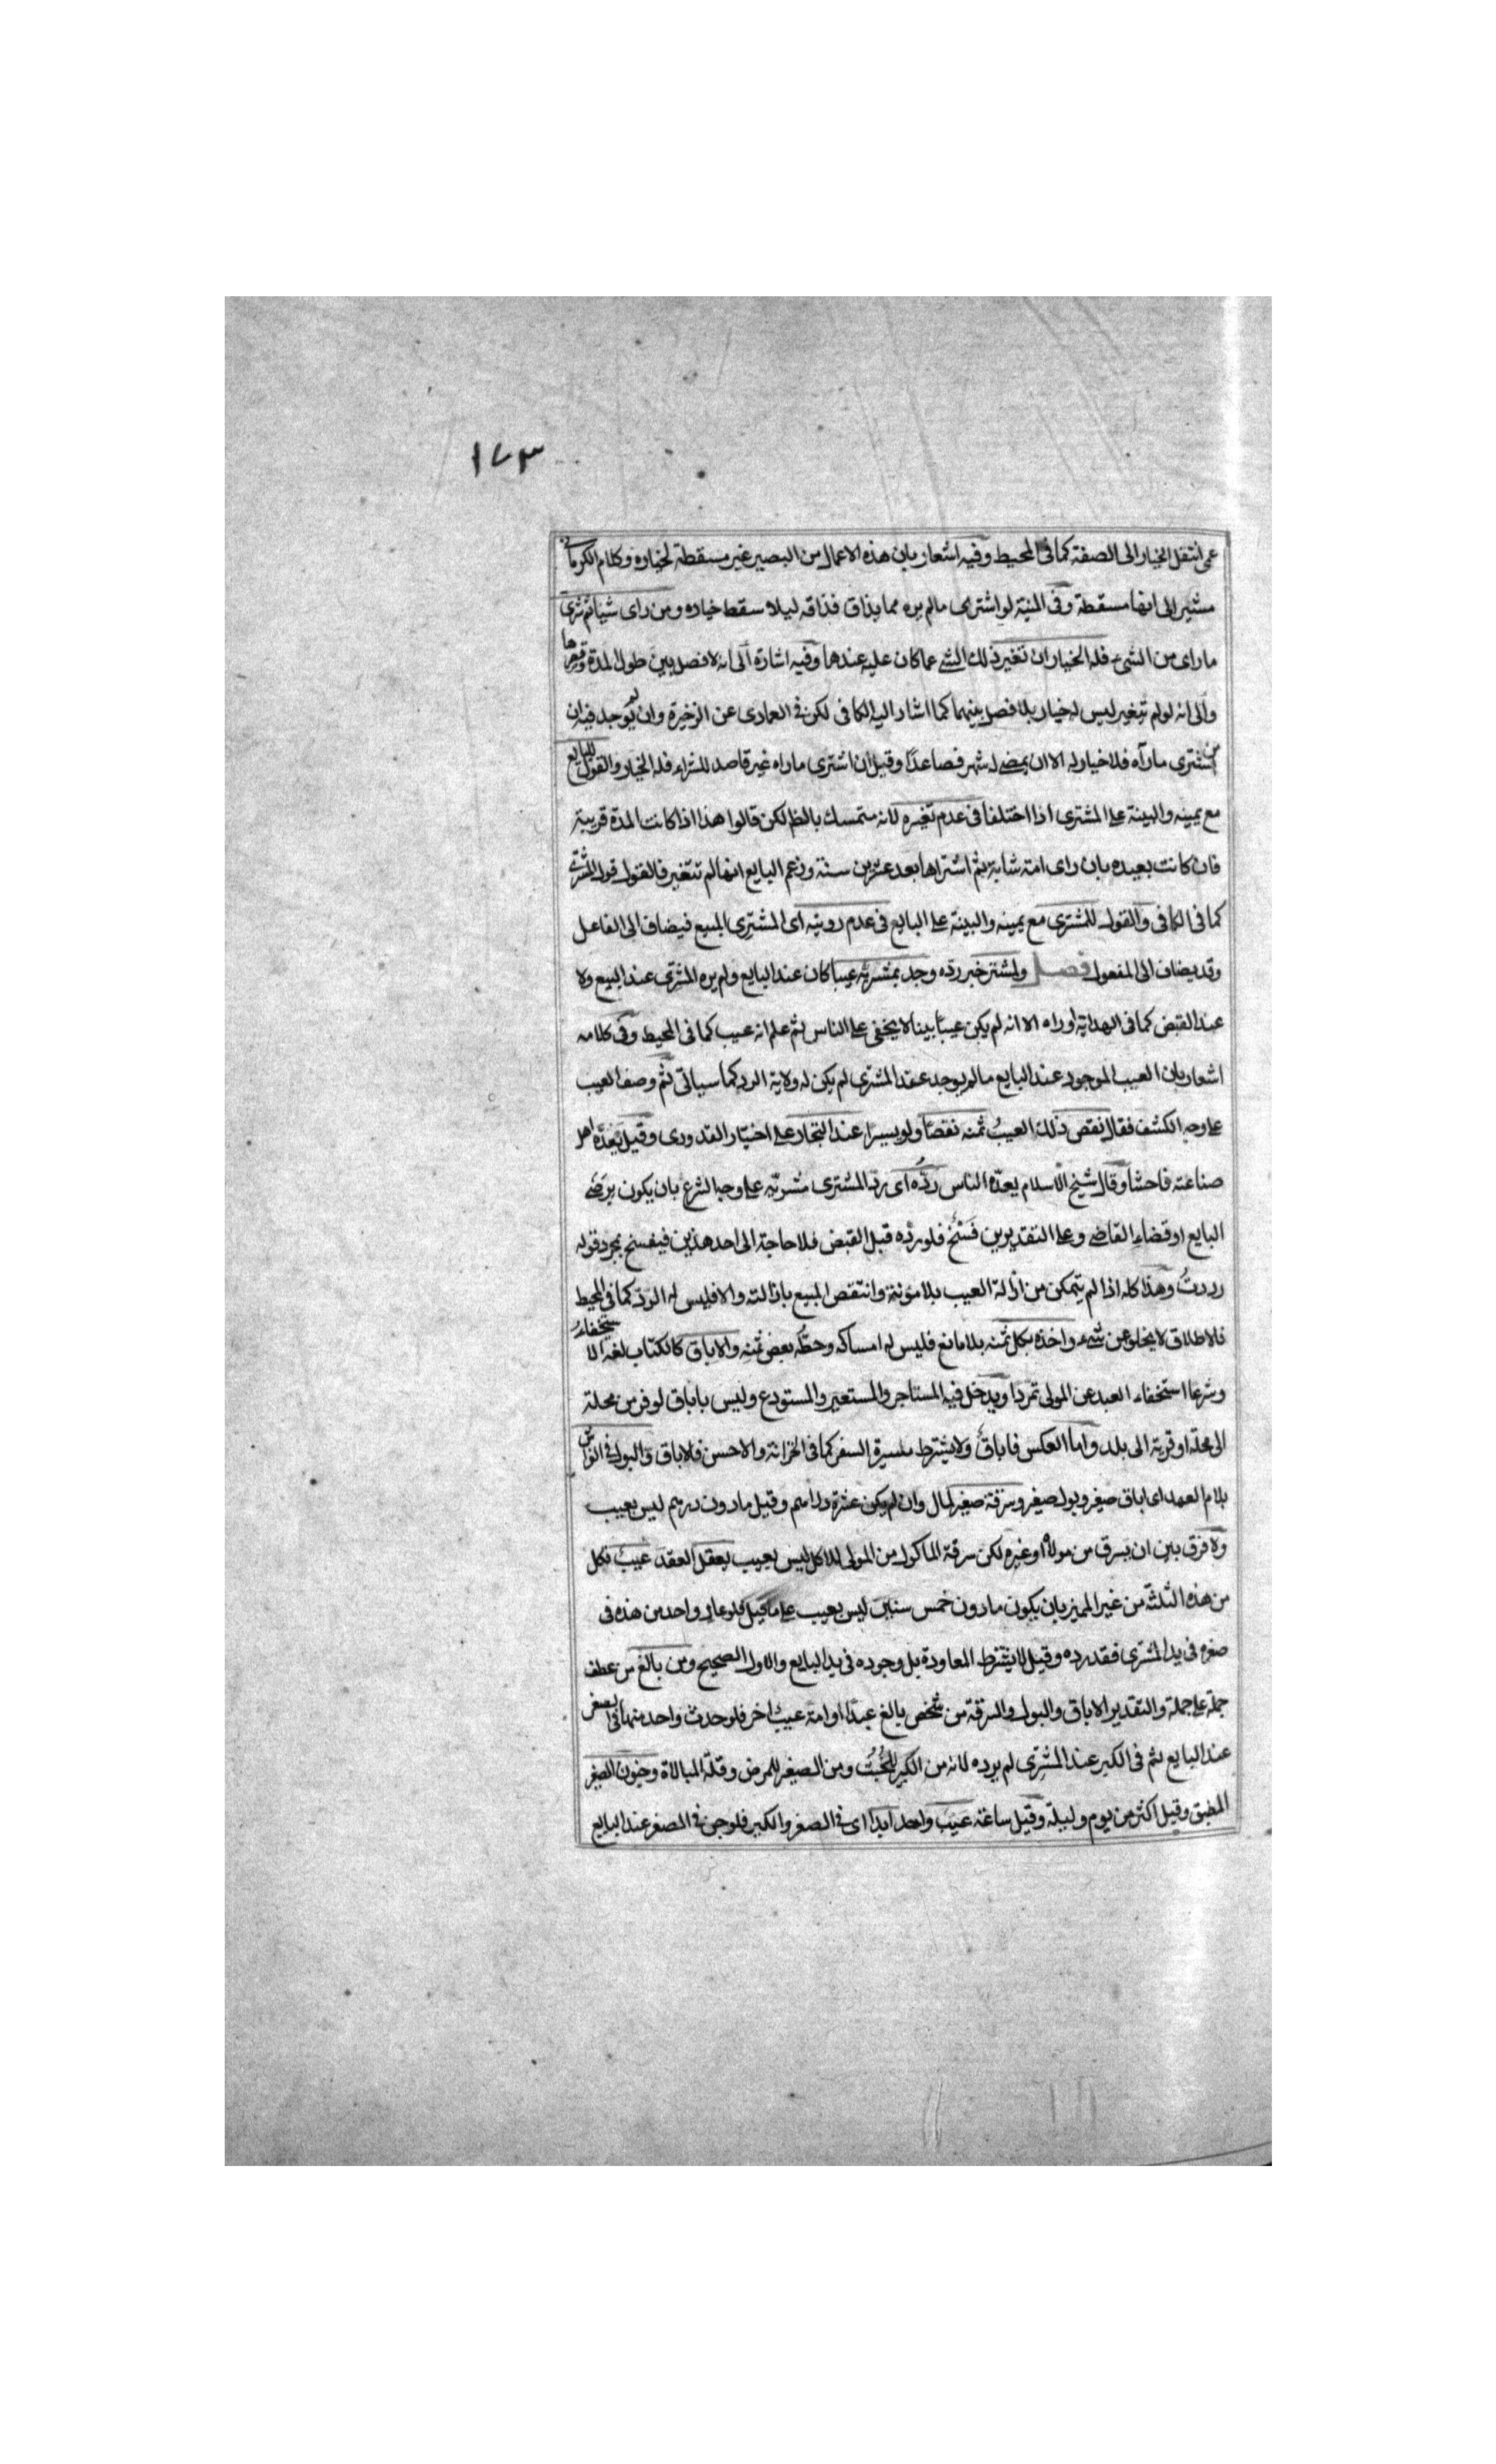 ١٧٣
عمى انتقل الخيار الى الصفة كما فى المحيط وفيه اشعار بان هذه الاعمال من البصير غير مسقطة لخياره وكلام الكرمانى
مشير الى انها مسقطة وفى المنية لو اشترى مالم يره مما يذاق فذاقه ليلا سقط خياره ومن راى شيا ثم شرى
ما راى من الشئ فله الخيار ان تغير ذلك الشئ عما كان عليه عندها وفيه اشارة الى انه لا فصل بين طول المدة وقصرها
والى انه لو لم تيغير ليس له خيار بلا فصل بينهما كما اشار اليه الكافى لكن فى العمادى عن الذخيرة وان لم يوجد فيه ان
من اشترى ما رآه فلا خيار له الا ان يمضى له شهر فصاعدًا وقيل ان اشترى ما راه غير قاصد للشراء فله الخيار والقول للبايع
مع يمينه والبينة على المشترى اذا اختلفا فى عدم تغيره لانه متمسك بالظ لكن قالوا هذا اذا كانت المدة قريبة
فان كانت بعيده بان راى امة شابة ثم اشتراها بعد عشرين سنة وزعم البايع انها لم تتغير فالقول قول المشترى
كما فى الكافى والقول للمشترى مع يمينه والبينة على البايع فى عدم رويته اى المشترى المبيع فيضاف الى الفاعل
وقد يضاف الى المفعول فصل ولمشتر خبر رده وجد بمشريه عيبا كان عند البايع ولم يره المشترى عند البيع ولا
عند القبض كما فى الهداية او راه الا انه لم يكن عيبًا بينا لا يخفى على الناس ثم علم انه عيب كما فى المحيط وفى كلامه
اشعار بان العيب الموجود عند البايع مالم يوجد عند المشترى لم يكن له ولاية الرد كما سياتى ثم وصف العيب
على وجه الكشف فقال نقص ذلك العيبُ ثمنه نقصًا ولو يسيرا عند التجار على اختيار القدورى وقيل يعدّه اهل
صناعته فاحشا وقال شيخ الاسلام يعدّه الناس ردُّه اى ردّ المشترى مشريّه على وجه الشرع بان يكون برضى
البايع او قضاء القاضى وعلى التقديرين فَسْخٌ فلو ردّه قبل القبض فلا حاجة الى احد هذين فيفسخ بمجرد قوله
رددتُ وهذا كله اذا لم يتمكن من ازالة العيب بلا مؤنة وانتقص المبيع بازالته والا فليس له الردّ كما فى المحيط
فلاطلاق لا يخلو عن شئ واخذه بكل ثمنه بلا مانع فليس له امساكه وحطّه بعض ثمنه والاباق كالكتاب لغة الاستخفاءُ
وشرعا استخفاء العبد عن المولى تمردا ويدخل فيه المستاجر والمستعير والمستودع وليس باباق لو فر من محلة
الى محلة او قرية الى بلد واما العكس فاباقٌ ولا يشترط مسيرة السفر كما فى الخزانة والاحسن فلاباق والبول فى الفراش
بلام العهد اى اباق صغير وبول صغير وسرقة صغير لمال وان لم يكن عشرة دراهم وقيل مادون درهم ليس بعيب
ولا فرق بين ان يسرق من مولاه او غيره لكن سرقة الماكول من المولى للاكل ليس بعيب يعقل العقد عيبٌ فكل
من هذه الثلثة من غير المميز بان يكون مادون خمس سنين ليس بعيب على ما قيل فلو عاد واحد من هذه فى
صغره فى يد المشترى فقد رده وقيل لا يشترط المعاودة بل وجوده فى يد البايع والاول الصحيح ومن بالغ من عطف
جملة على جملة والتقدير الاباق والبول والسرقة من شخص بالغ عبدًا او امة عيبٌ اخر فلو حدث واحد منها فى الصغر
عند البايع ثم فى الكبر عند المشترى لم يرده لانه من الكبير للخُبثُ ومن الصغير للمرض وقلّة المبالاة وجنون الصغير
المطبق وقيل اكثر من يوم وليلة وقيل ساعة عيبٌ واحد ابدا اى فى الصغر والكبر فلو جن فى الصغر عند البايع